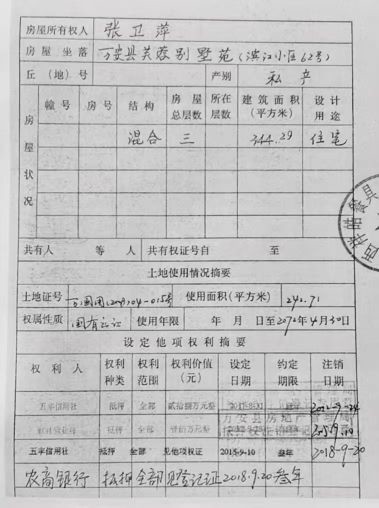 房屋所有权人 张卫萍
房屋坐落 万安县芙蓉别墅苑(滨江小区62号)
丘(地)号 产别 私产
房屋状况
幢号 房号 结构 房屋总层数 所在层数 建筑面积(平方米) 设计用途
混合 三 344.29 住宅
共有人 等 人 共有权证号自 至
土地使用情况摘要
土地证号 使用面积(平方米) 242.71
权属性质 国有 使用年限 年 月 日至2072年4月30日
设定他项权利摘要
权利人 权利种类 权利范围 权利价值(元) 设定日期 约定期限 注销日期
五丰信用社 抵押 全部
抵押 全部
万安县房地产
五丰信用社 抵押 全部 见他项权证 2015-9-10 叁年 2018-9-20
农商银行 抵押 全部 见登记证 2018.9.20 叁年